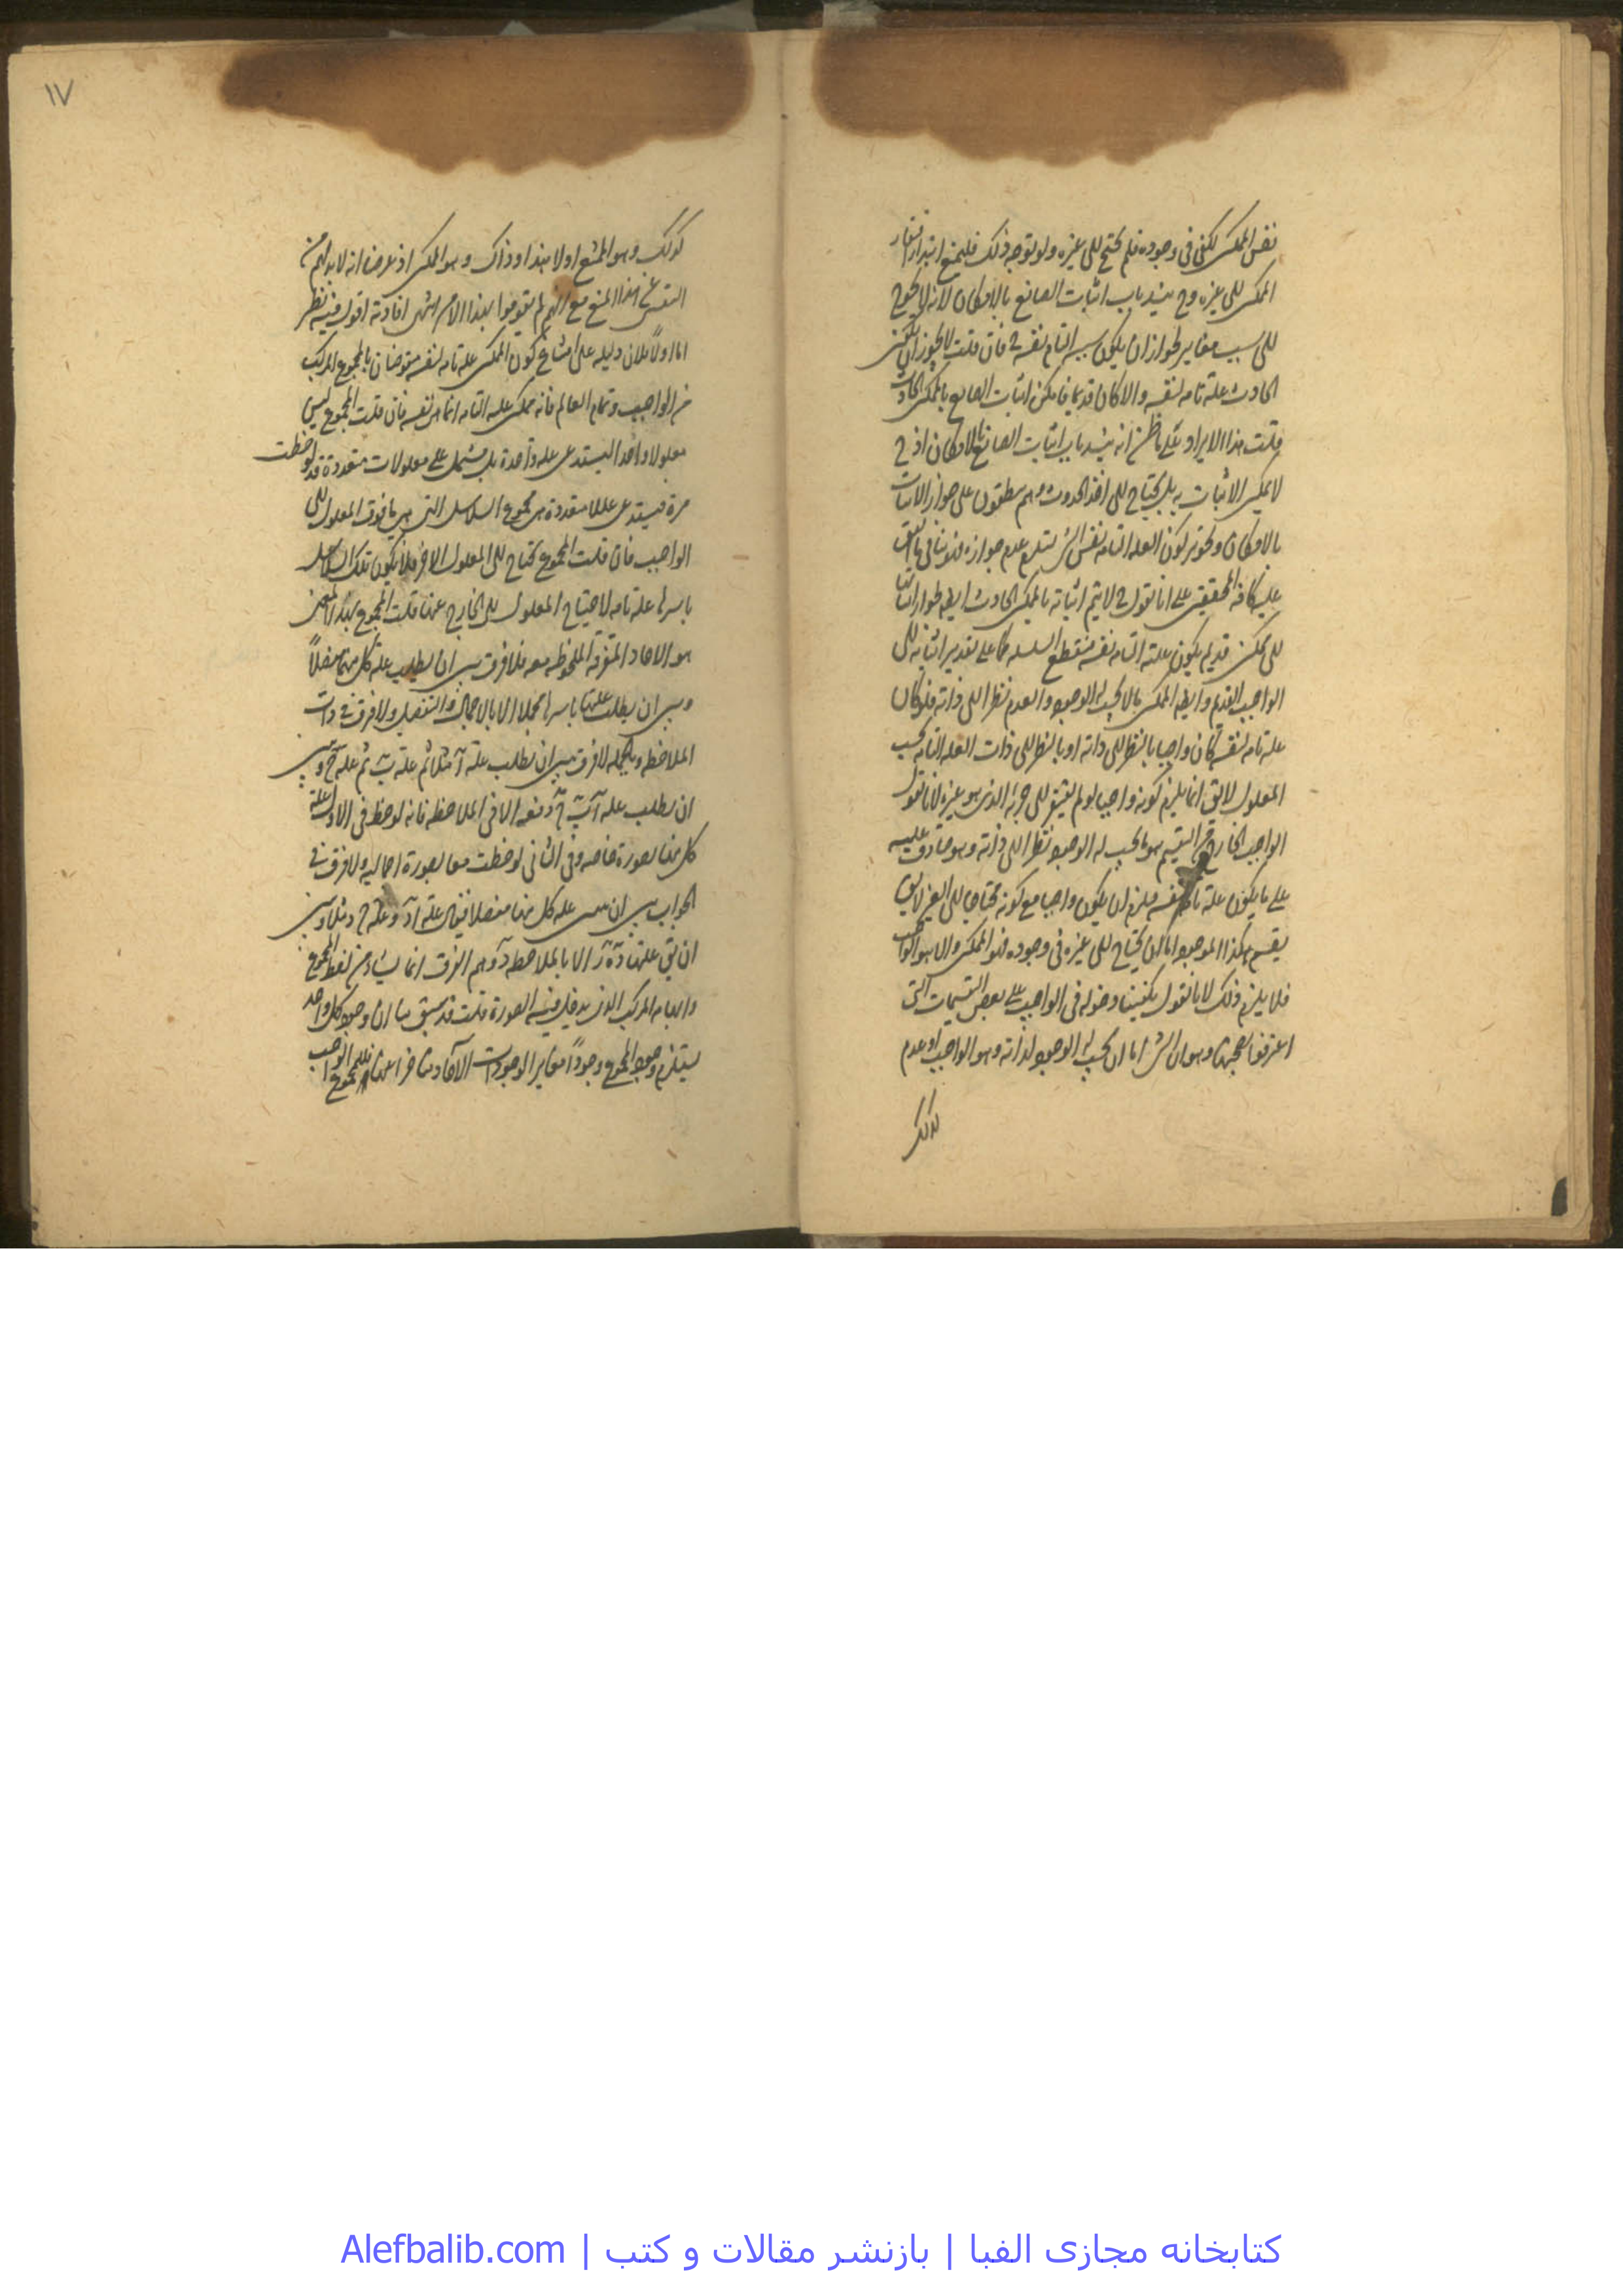 نفس الممكن يكفى فى وجوده فلم يحتج الى غيره ولو توجه ذلك فليمنع ابتداء افتقار
الممكن الى غيره وح ينسد باب اثبات الصانع بالامكان لانه لا يحوج
الى سبب مغاير لجواز ان يكون سببه التام نفسه فان قلت لا يجوز ان يكون
الحادث علة تامة لنفسه والا كان قديما فامكن اثبات الصانع بالممكن الحادث
قلت هذا الايراد على ما ظن انه ينسد باب اثبات الصانع بالامكان اذ ح
لا يمكن الاثبات به بل يحتاج الى اخذ الحدوث وهم مطبقون على جواز الاثبات
بالامكان وتجويز كون العلة التامة نفس الشى يستلزم عدم جوازه فينافى ما اتفق
عليه كافة المحققين على انا نقول ح لا يتم اثباته بالممكن الحادث ايضا لجواز انتهائه
الى ممكن قديم يكون علته التامة نفسه فينقطع السلسلة كما على تقدير انتهائه الى
الواجب القديم وايضا الممكن ما لا يجب له الوجود والعدم نظرا الى ذاته فلو كان
علة تامة لنفسه لكان واجبا بالنظر الى ذاته اذ بالنظر الى ذات العلة التامة يجب
المعلول لا يق انما يلزم كونه واجبا لو لم يفتقر الى جزئه الذى هو غيره لانا نقول
الواجب الخارج من التقسيم هو ما يجب له الوجود نظرا الى ذاته وهو صادق عليه
على ما يكون علة تامة لنفسه فيلزم ان يكون واجبا مع كونه محتاجا الى الغير لا يق
يقسم هكذا الموجود اما ان يحتاج الى غيره فى وجوده فهو الممكن والا هو الواجب
فلا يلزم ذلك لانا نقول يكفينا دخوله فى الواجب على بعض التقسيمات التى
اعترفوا بصحتها وهو ان الشى اما ان يجب له الوجود لذاته وهو الواجب او عدم
كذلك
١٧
كذلك وهو الممتنع او لا هذا ولا ذاك وهو الممكن اذ غرضنا انه لا بد لهم من
التفصى عن هذا المنع مع انهم لم يقوموا بهذا الامر انتهى افادته اقول وفيه نظر
اما اولا فلان دليله على امتناع كون الممكن علة تامة لنفسه منقوضان بالمجموع المركب
من الواجب وتمام العالم فانه ممكن علته التامة انما هى نفسه فان قلت المجموع ليس
معلولا واحدا ليستدعى علة واحدة بل يشتمل على معلولات متعددة قد لوحظت
مرة فيستدعى عللا متعددة هى مجموع السلاسل التى هى ما فوق المعلول الى
الواجب فان قلت المجموع يحتاج الى المعلول الاخر فلا يكون تلك السلاسل
باسرها علة تامة لاحتياج المعلول الى الخارج عنها قلت المجموع بهذا المعنى
هو الاحاد المتفرقة الملحوظة معا فلا فرق بين ان يطلب علة كل منها مفصلاً
وبين ان يطلب علتها باسرها مجملا الا بالاجمال والتفصيل ولا فرق فى ذات
الملاحظة وبالجملة لا فرق بين ان يطلب علة آ مثلا ثم علة ب ثم علة ج وبين
ان يطلب علة آ ب ج دفعة الا فى الملاحظة فانه لوحظ فى الاول علة
كل منها بصورة خاصة وفى الثانى لوحظت معا بصورة اجمالية ولا فرق فى
الجواب بين ان يبين علة كل منها مفصلا فيقال علة آ د وعلة ج د مثلا وبين
ان يق علتها د آ ر الا بالملاحظة وتوهم الفرق انما ينشاء من لفظ المجموع
وايهامه المركب الذى يدخل فيه الصورة قلت قد سبق منا ان وجود كل واحد
يستلزم وجود المجموع وجوداً مغاير الوجودات الآحاد متاخرا عنها فللمجموع الواجب
کتابخانه مجازی الفبا | بازنشر مقالات و کتب | Alefbalib.com